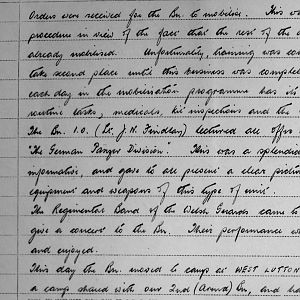 Orders were received for the Bn. to mobilise. This wa
procedure in view of the fact that the rest of the d
already mobilised. Unfortunately, training was com
take second place until this business was complet
each day in the mobilisation programme has its
routine tasks, medicals, kit inspections and the
The Bn. I.O. (Lt. J.H. Findlay) lectured all offrs
"The German Panzer Division". This was a splendid
information, and gave to all present a clear pictu
equipment and weapons of this type of unit.
The Regimental Band of the Welsh Guards came t
give a concert to the Bn. Their performance w
and enjoyed.
This day the Bn. moved to camp at WEST LUTTON
a camp shared with our 2nd (Armd) Bn, and h